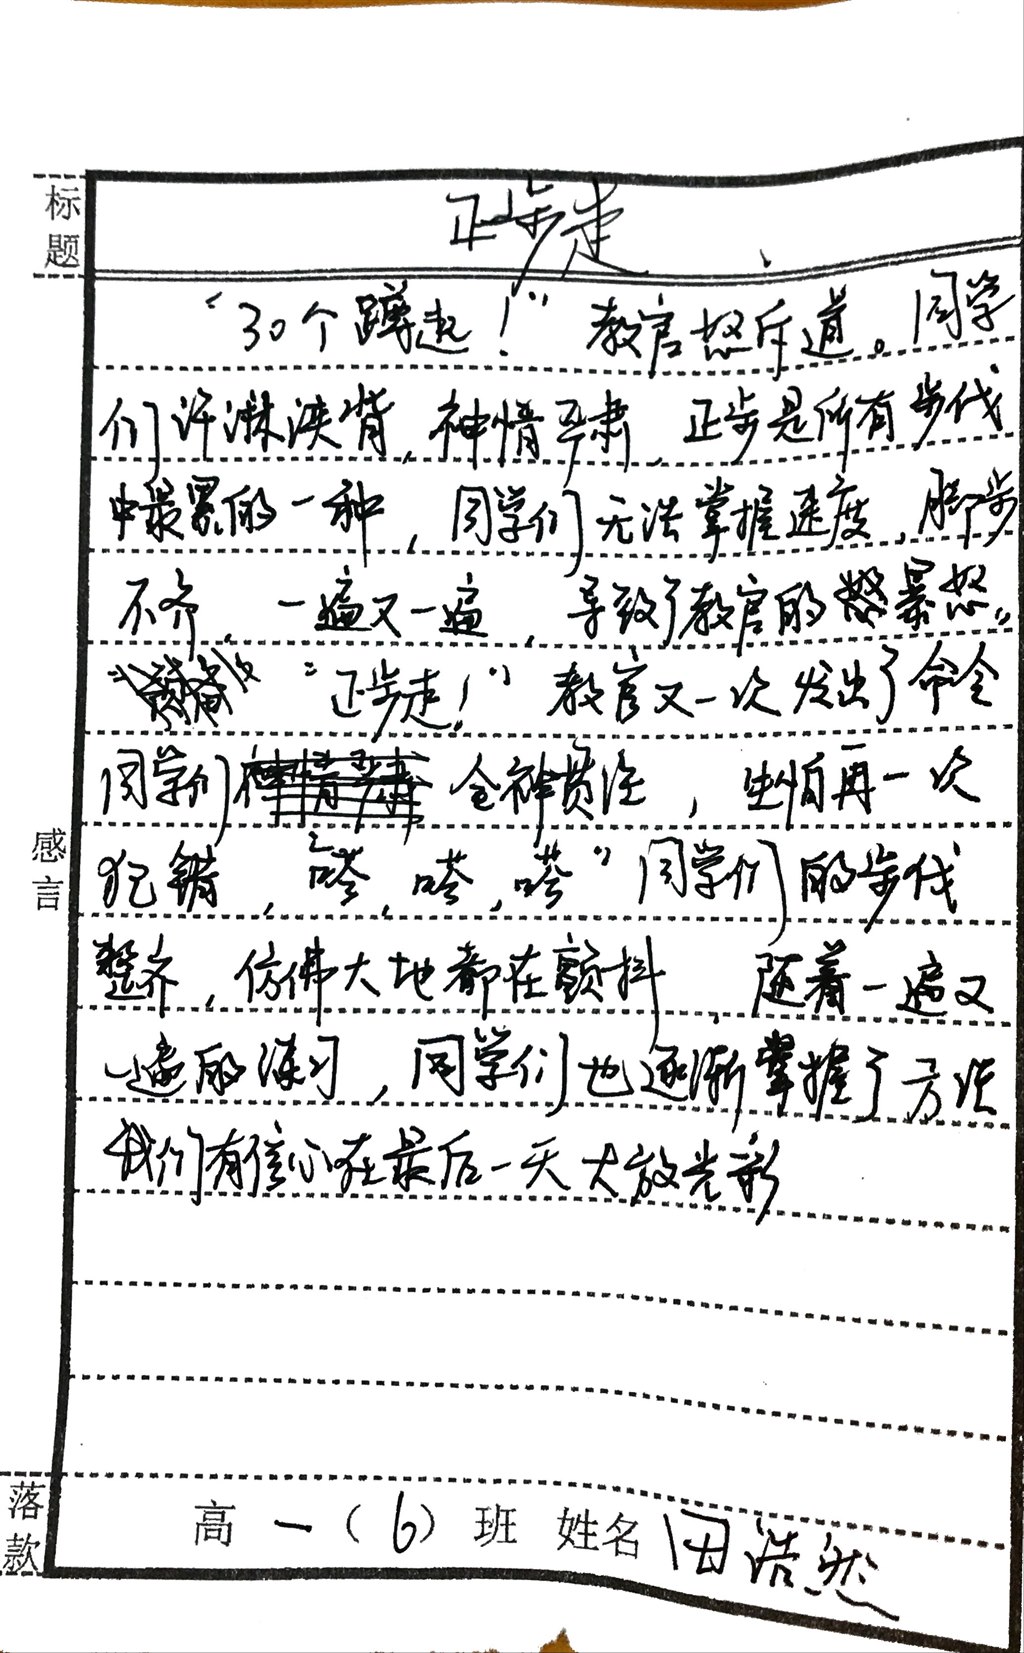 标题
正步走
“30个蹲起!”教官怒斥道。同学
们汗淋浃背,神情严肃,正步是所有步伐
中最累的一种,同学们无法掌握速度,脚步
不齐,一遍又一遍,导致了教官的暴怒。
“正步走!”教官又一次发出了命令
同学们全神贯注,生怕再一次
犯错,“嗒,嗒,嗒”同学们的步伐
整齐,仿佛大地都在颤抖,随着一遍又
一遍的练习,同学们也逐渐掌握了方法
我们有信心在最后一天大放光彩
感言
落款
高一(6)班 姓名 田浩然